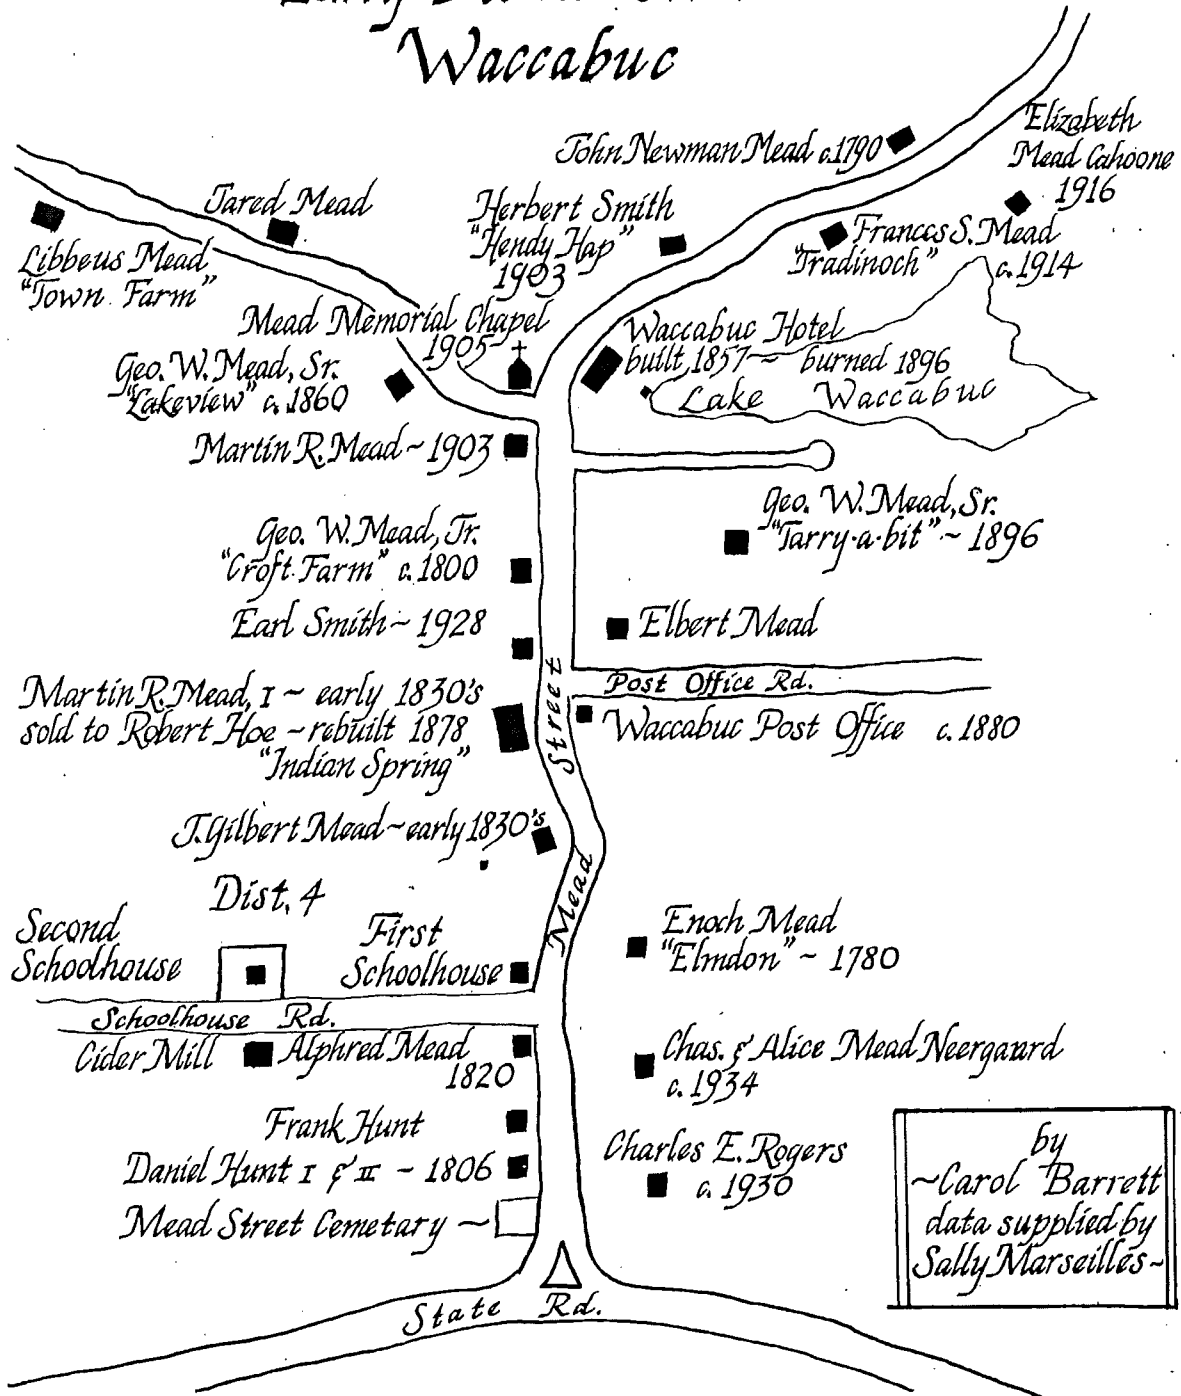 Waccabuc
John Newman Mead c.1790
Elizabeth
Mead Cahoone
1916
Jared Mead
Herbert Smith
"Hendy Hap"
1903
Frances S. Mead
"Tradinoch"
c. 1914
Libbeus Mead
"Town Farm"
Mead Memorial Chapel
1905
Waccabuc Hotel
built, 1857 ~ burned 1896
Geo. W. Mead, Sr.
"Lakeview" c. 1860
Lake Waccabuc
Martin R. Mead ~ 1903
Geo. W. Mead, Sr.
"Tarry-a-bit" ~ 1896
Geo. W. Mead, Jr.
"Croft Farm" c. 1800
Earl Smith ~ 1928
Elbert Mead
Post Office Rd.
Martin R. Mead, I ~ early 1830's
sold to Robert Hoe ~ rebuilt 1878
"Indian Spring"
Waccabuc Post Office c. 1880
Mead Street
J. Gilbert Mead ~ early 1830's
Dist. 4
Second
Schoolhouse
First
Schoolhouse
Enoch Mead
"Elmdon" ~ 1780
Schoolhouse Rd.
Cider Mill
Alphred Mead
1820
Chas. & Alice Mead Neergaard
c. 1934
Frank Hunt
Daniel Hunt I & II ~ 1806
Charles E. Rogers
c. 1930
Mead Street Cemetary ~
State Rd.
by
~Carol Barrett
data supplied by
Sally Marseilles~